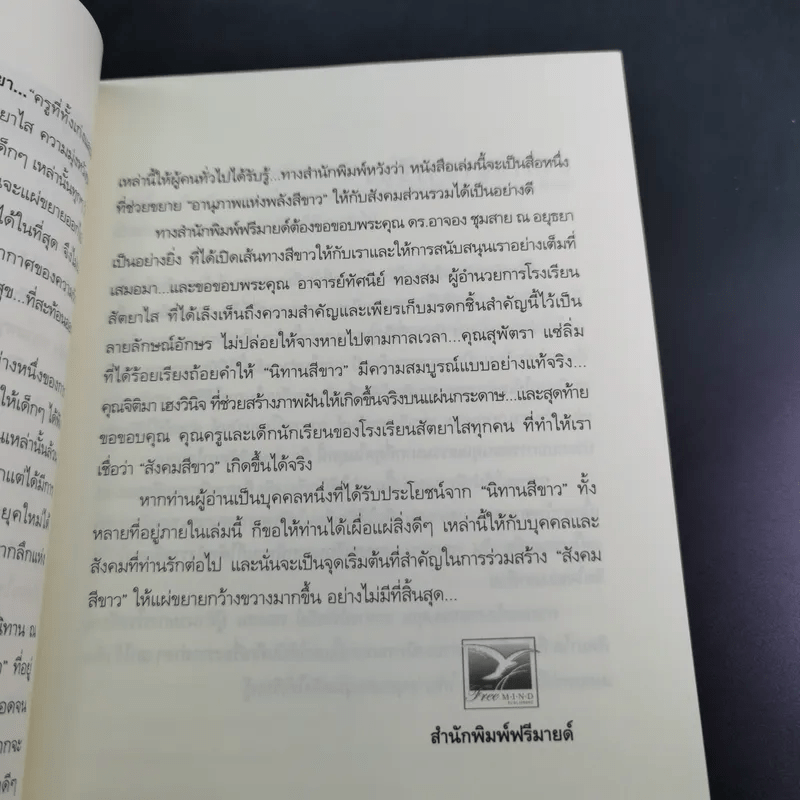 ยา..."ครูที่ทั้งเก่ง
ยาไส ความมุ่ง
ด็กๆ เหล่านั้นทุก
นจะแผ่ขยายออก
ได้ในที่สุด จึงไ
ากาศของความ
สุข...ที่สะท้อน
่างหนึ่งของกา
ให้เด็กๆ ได้
นเหล่านั้นล้วน
กแต่ได้มีกา
ยุคใหม่ได้
ากลึกแห่ง
นิทาน ณ
" ที่อยู่
อดจน
ากจะ
ดีๆ
เหล่านี้ให้ผู้คนทั่วไปได้รับรู้...ทางสำนักพิมพ์หวังว่า หนังสือเล่มนี้จะเป็นสื่อหนึ่ง
ที่ช่วยขยาย "อานุภาพแห่งพลังสีขาว" ให้กับสังคมส่วนรวมได้เป็นอย่างดี
ทางสำนักพิมพ์ฟรีมายด์ต้องขอขอบพระคุณ ดร.อาจอง ชุมสาย ณ อยุธยา
เป็นอย่างยิ่ง ที่ได้เปิดเส้นทางสีขาวให้กับเราและให้การสนับสนุนเราอย่างเต็มที่
เสมอมา...และขอขอบพระคุณ อาจารย์ทัศนีย์ ทองสม ผู้อำนวยการโรงเรียน
สัตยาไส ที่ได้เล็งเห็นถึงความสำคัญและเพียรเก็บมรดกชิ้นสำคัญนี้ไว้เป็น
ลายลักษณ์อักษร ไม่ปล่อยให้จางหายไปตามกาลเวลา...คุณสุพัตรา แซ่ลิ่ม
ที่ได้ร้อยเรียงถ้อยคำให้ "นิทานสีขาว" มีความสมบูรณ์แบบอย่างแท้จริง...
คุณจิติมา เฮงวินิจ ที่ช่วยสร้างภาพฝันให้เกิดขึ้นจริงบนแผ่นกระดาษ...และสุดท้าย
ขอขอบคุณ คุณครูและเด็กนักเรียนของโรงเรียนสัตยาไสทุกคน ที่ทำให้เรา
เชื่อว่า "สังคมสีขาว" เกิดขึ้นได้จริง
หากท่านผู้อ่านเป็นบุคคลหนึ่งที่ได้รับประโยชน์จาก "นิทานสีขาว" ทั้ง
หลายที่อยู่ภายในเล่มนี้ ก็ขอให้ท่านได้เผื่อแผ่สิ่งดีๆ เหล่านี้ให้กับบุคคลและ
สังคมที่ท่านรักต่อไป และนั่นจะเป็นจุดเริ่มต้นที่สำคัญในการร่วมสร้าง "สังคม
สีขาว" ให้แผ่ขยายกว้างขวางมากขึ้น อย่างไม่มีที่สิ้นสุด...
Free MIND
สำนักพิมพ์ฟรีมายด์